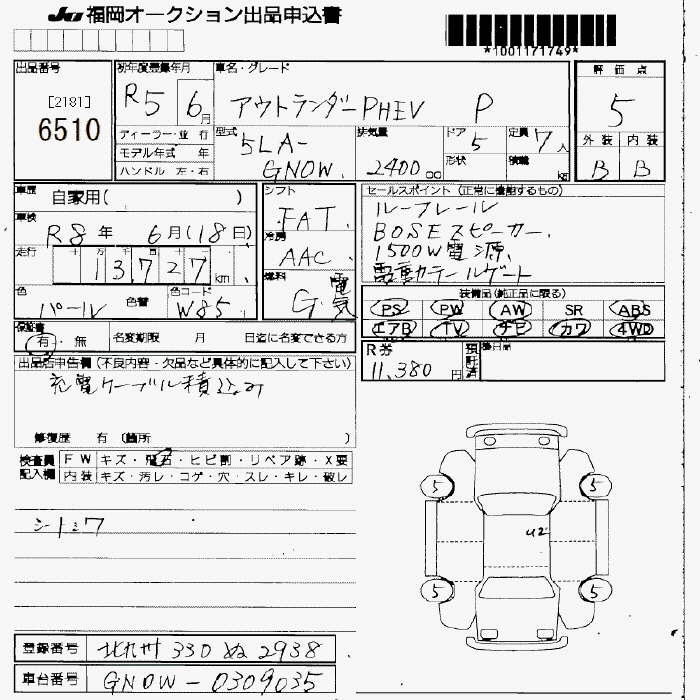 JU 福岡オークション出品申込書
*1001171749*
出品番号
[2181]
6510
初年度登録年月
R5 6月
車名・グレード
アウトランダーPHEV P
評価点
5
外装 内装
B B
ディーラー・並行
モデル年式 年
ハンドル 左・右
型式
5LA-
GN0W.
排気量
2400 cc
ドア
5
形状
定員
7人
積載
kg
車歴
自家用( )
車検
R8年 6月(18日)
走行
十 万 千 百 十
13,727km
色
パール
色替
色コード
W85
シフト
FAT.
冷房
AAC
燃料
G 電気
セールスポイント(正常に機能するもの)
ルーフレール
BOSEスピーカー.
1500W電源.
電動カテールゲート
装備品(純正品に限る)
PS PW AW SR ABS
エアB TV ナビ カワ 4WD
保証書
有・無
名変期限 月 日迄に名変できる方
R券
11,380円
預託済
後日品
出品店申告欄(不良内容・欠品など具体的に記入して下さい)
充電ケーブル積込み
修復歴 有(箇所 )
検査員記入欄
FW キズ・飛石・ヒビ割・リペア跡・X要
内装 キズ・汚レ・コゲ・穴・スレ・キレ・破レ
シートシワ
5
5
U2
5
5
登録番号
北九州 330 ぬ 2938
車台番号
GN0W-0309035